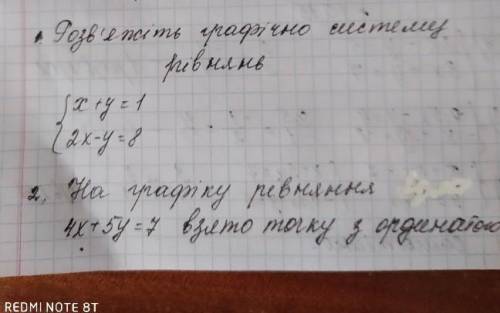 1. Розв'яжіть графічно систему
рівнянь
x+y=1
2x-y=8
2. На графіку рівняння
4x+5y=7 взято точку з ординатою
REDMI NOTE 8T